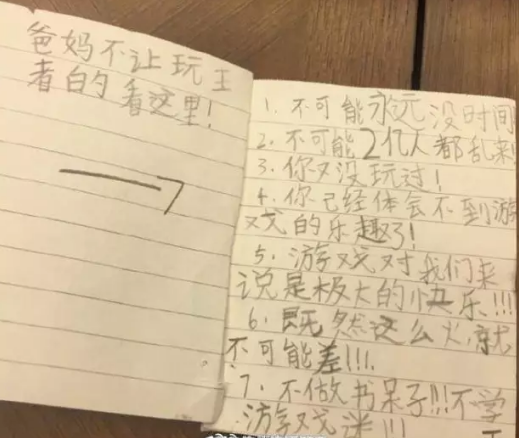 爸妈不让玩王
者的看这里!
1. 不可能永远没时间
2. 不可能2亿人都乱来
3. 你又没玩过!
4. 你已经体会不到游
戏的乐趣了!
5. 游戏对我们来
说是极大的快乐!!!
6. 既然这么火,就
不可能差!!!.
7. 不做书呆子!!!不学
游戏迷!!!